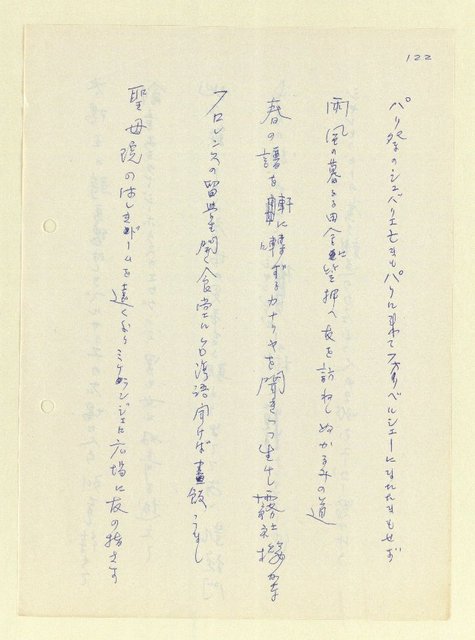 122
パリ祭のシュバリエもきもパリにれて フォリベルジェーにもせず
雨風の暮るる田舎に笠押へ友を訪ねしぬかるみの道
春の譜を軒に囀ずるカナリヤを聞きつつ生けし霧社桜かな
フロレンスの留学生開く食堂に台湾語聞けば昼飯うまし
聖母院のはしきドームを遠くなりミケランジェロ広場に友の指さす